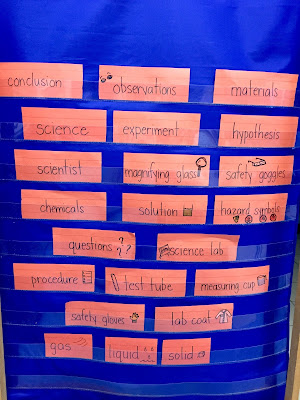 conclusion observations materials
science experiment hypothesis
scientist magnifying glass safety goggles
chemicals solution hazard symbols
questions science lab
procedure test tube measuring cup
safety gloves lab coat
gas liquid solid